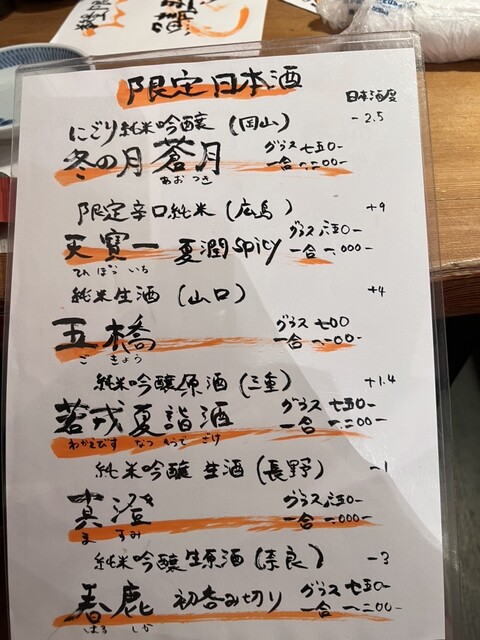 限定日本酒
日本酒度
にごり純米吟醸 (岡山) -2.5
冬の月 蒼月 グラス 七五〇-
あおつき 一合 一、二〇〇-
限定辛口純米 (広島) +9
天寶一 夏潤Spicy グラス 六五〇-
てんぽういち 一合 一、〇〇〇-
純米生酒 (山口) +4
五橋 グラス 七〇〇
ごきょう 一合 一、一〇〇-
純米吟醸原酒 (三重) +1.4
若戎夏詣酒 グラス 七五〇-
わかえびす なつ もうで さけ 一合 一、二〇〇-
純米吟醸 生酒 (長野) -1
真澄 グラス 六五〇-
ますみ 一合 一、〇〇〇-
純米吟醸生原酒 (奈良) -3
春鹿 初呑み切り グラス 七五〇-
はるしか 一合 一、二〇〇-